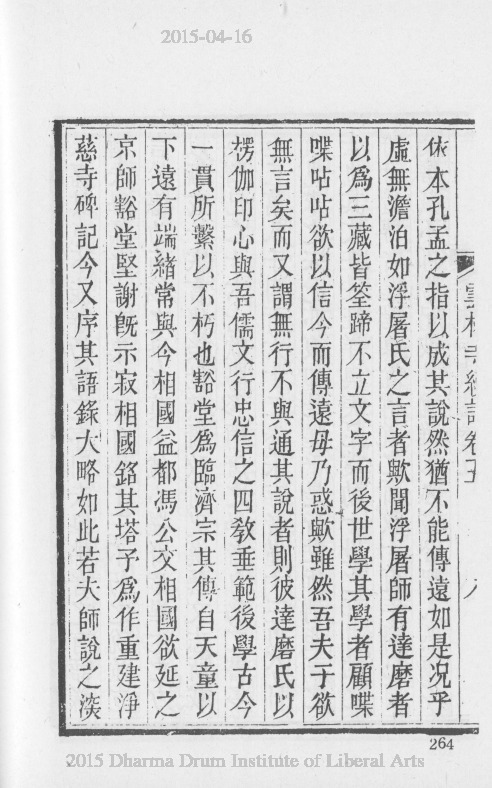 2015-04-16
雲林寺續誌卷五 八
依本孔孟之指以成其說然猶不能傳遠如是况乎
虛無澹泊如浮屠氏之言者歟聞浮屠師有達磨者
以爲三藏皆筌蹄不立文字而後世學其學者顧喋
喋呫呫欲以信今而傳遠毋乃惑歟雖然吾夫子欲
無言矣而又謂無行不與通其說者則彼達磨氏以
楞伽印心與吾儒文行忠信之四敎垂範後學古今
一貫所繫以不朽也豁堂爲臨濟宗其傳自天童以
下遠有端緒常與今相國益都馮公交相國欲延之
京師豁堂堅謝旣示寂相國銘其塔予爲作重建淨
慈寺碑記今又序其語錄大略如此若夫師說之淡
264
2015 Dharma Drum Institute of Liberal Arts